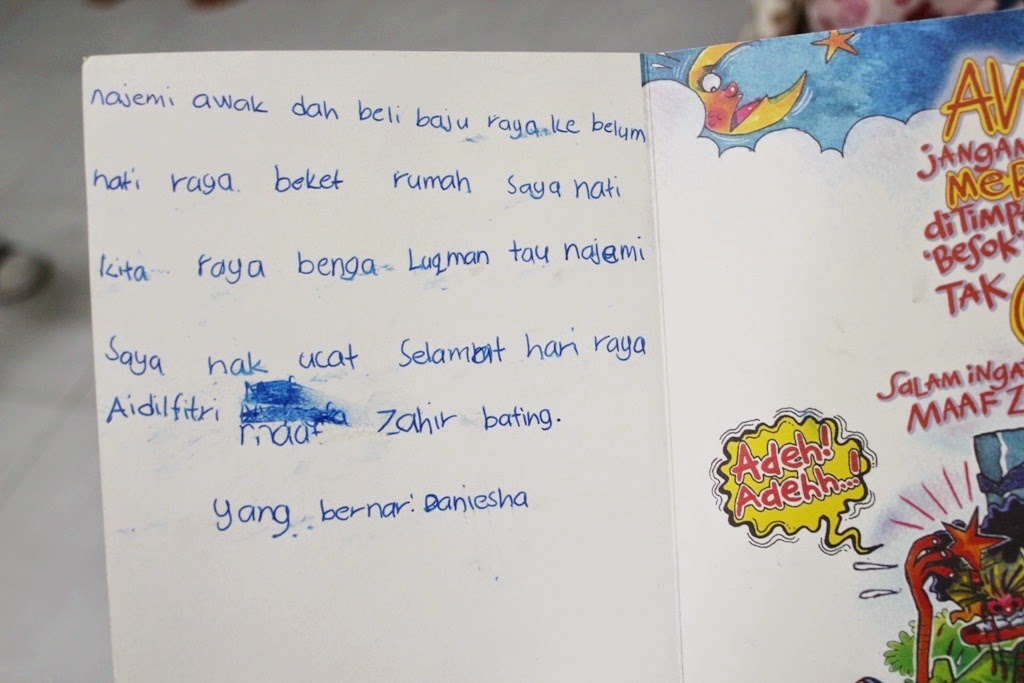 najemi awak dah beli baju raya ke belum
hati raya beket rumah saya nati
kita raya benga Luqman tau najemi
Saya nak ucat Selamat hari raya
Aidilfitri maaf Zahir bating.
yang bernar: Daniesha
JANGAN
diTIMP
'BESOK'
TAK
SALAM iNGA
MAAF Z
Adeh!
Adehh...!